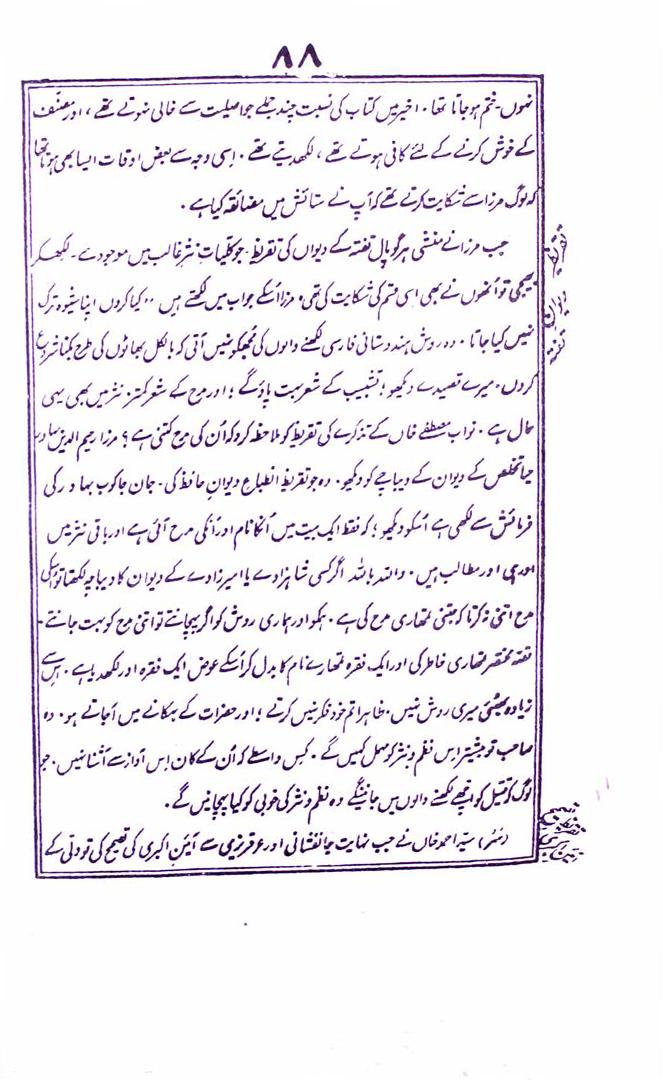 ۸۸
نہوں۔ ختم ہوجاتا تھا۔ اخیر میں کتاب کی نسبت چند جملے جو اصلیت سے خالی نہوتے تھے، اور مصنف
کے خوش کرنے کے لئے کافی ہوتے تھے، لکھدیتے تھے۔ اسی وجہ سے بعض اوقات ایسا بھی ہوتا تھا
کہ لوگ مرزا سے شکایت کرتے تھے کہ آپ نے ستائش میں مضائقہ کیا ہے۔
جب مرزا نے منشی ہرگوپال تفتہ کے دیوان کی تقریظ۔ جو کلیات نثر غالب میں موجود ہے۔ لکھکر
بھیجی تو اُنھوں نے بھی اسی قسم کی شکایت کی تھی، مرزا اُسکے جواب میں لکھتے ہیں ،،کیا کروں اپنا شیوہ ترک
نہیں کیا جاتا۔ وہ روش ہندوستانی فارسی لکھنے والوں کی مجھکو نہیں آتی کہ بالکل بھاٹوں کی طرح بکنا شروع
کروں۔ میرے قصیدے دیکھو؛ تشبیب کے شعر بہت پاؤگے؛ اور مدح کے شعر کمتر۔ نثر میں بھی یہی
حال ہے۔ نواب مصطفٰے خاں کے تذکرے کی تقریظ کو ملاحظہ کرو کہ اُن کی مدح کتنی ہے؟ مرزا رحیم الدین بہادر
حیا تخلص کے دیوان کے دیباچے کو دیکھو۔ وہ جو تقریظ انطباعِ دیوانِ حافظ کی۔ جان جاکوب بہادر کی
فرمائش سے لکھی ہے اُسکو دیکھو؛ کہ فقط ایک بیت میں اُنکا نام اور اُنکی مدح آئی ہے اور باقی نثر میں
اور ہی اور مطالب ہیں۔ واللہ باللہ اگر کسی شاہزادے یا امیرزادے کے دیوان کا دیباچہ لکھتا تو اُسکی
مدح اتنی نہ کرتا کہ جتنی تمھاری مدح کی ہے۔ ہمکو اور ہماری روش کو اگر پہچانتے تو اتنی مدح کو بہت جانتے۔
قصّہ مختصر تمھاری خاطر کی اور ایک فقرہ تمھارے نام کا بدل کر اُسکے عوض ایک فقرہ اور لکھدیا ہے۔ اِس سے
زیادہ بھٹئی میری روش نہیں۔ ظاہرا تم خود فکر نہیں کرتے؛ اور حضرات کے بہکانے میں آجاتے ہو۔ وہ
صاحب تو بیشتر اِس نظم و نثر کو مہمل کہیں گے۔ کس واسطے کہ اُن کے کان اِس آواز سے آشنا نہیں۔ جو
لوگ کہ قتیل کو اچھے لکھنے والوں میں جانینگے وہ نظم و نثر کی خوبی کو کیا پہچانیں گے۔
(سَر) سیّد احمد خاں نے جب نہایت جانفشانی اور عرقریزی سے آئین اکبری کی تصحیح کی تو دلّی کے
تقریظ
دیوان
تفتہ